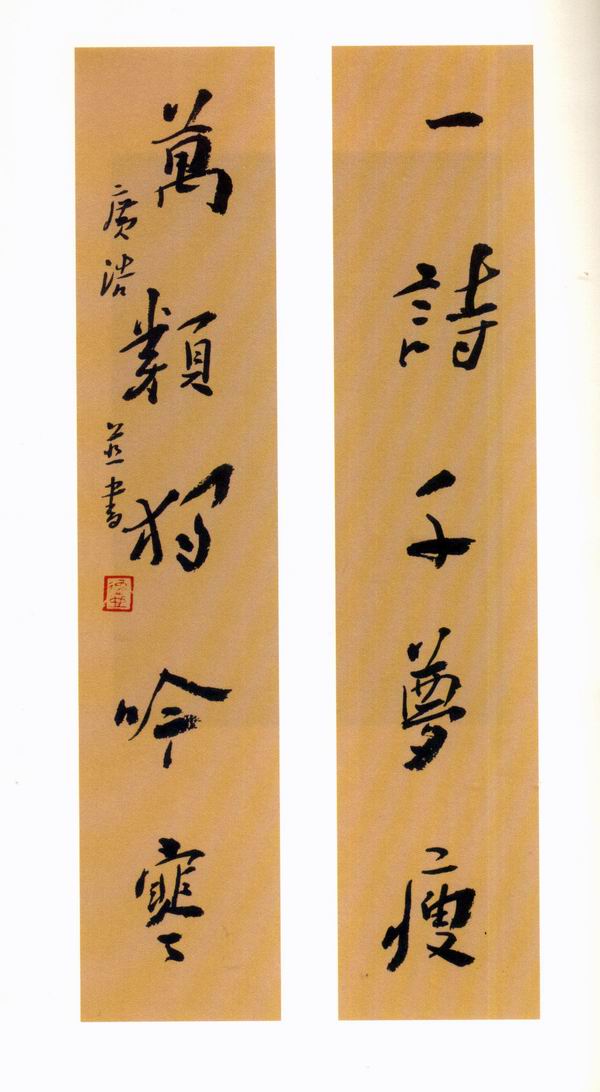 一詩千夢瘦
萬類獨吟寒
廣浩並書